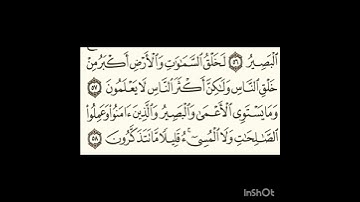 ٱلْبَصِيرُ ٥٦ لَخَلْقُ ٱلسَّمَٰوَٰتِ وَٱلْأَرْضِ أَكْبَرُ مِنْ
خَلْقِ ٱلنَّاسِ وَلَٰكِنَّ أَكْثَرَ ٱلنَّاسِ لَا يَعْلَمُونَ ٥٧
وَمَا يَسْتَوِى ٱلْأَعْمَىٰ وَٱلْبَصِيرُ وَٱلَّذِينَ ءَامَنُوا۟ وَعَمِلُوا۟
ٱلصَّٰلِحَٰتِ وَلَا ٱلْمُسِىٓءُ ۚ قَلِيلًا مَّا تَتَذَكَّرُونَ ٥٨
InShOt